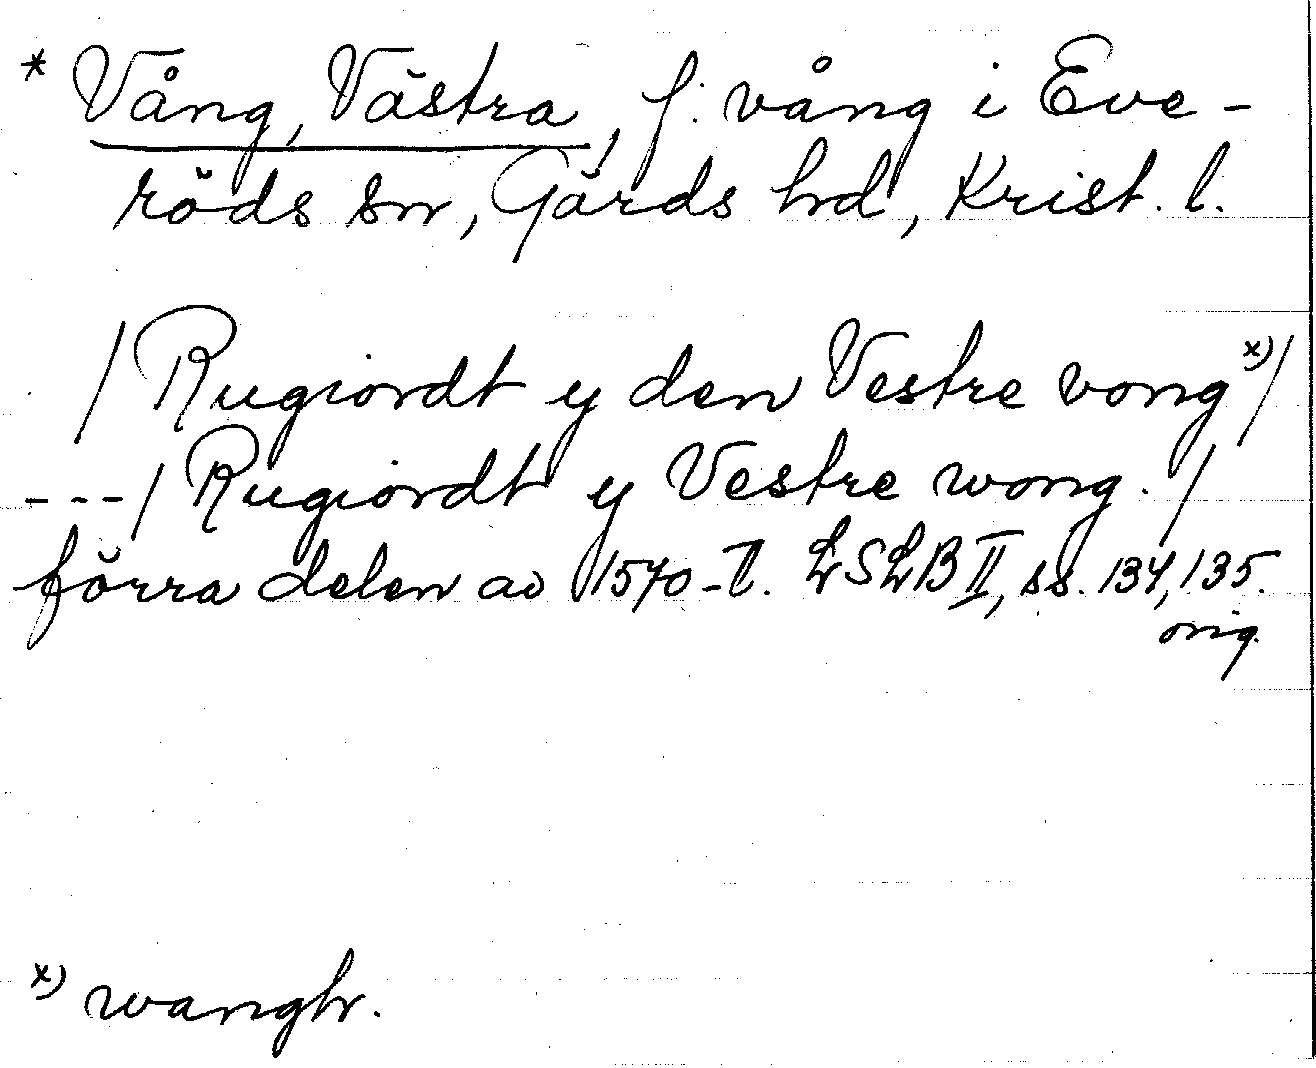 * Vång, Västra, f. vång i Eve-
röds sn, Gärds hd, Krist. l.
/ Rugiordt y den Vestre vong x) /
--- / Rugiordt y Vestre wong. /
förra delen av 1570-t. LSLB II, ss. 134, 135.
orig.
x) wangh.